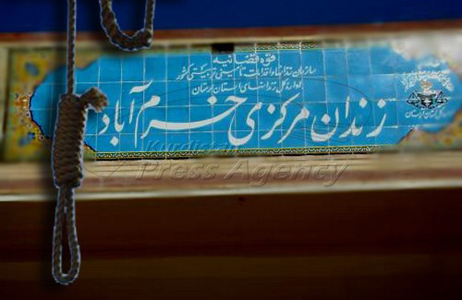 قوه قضائیه
سازمان زندانها و اقدامات تأمینی و تربیتی کشور
اداره کل زندانهای استان لرستان
زندان مرکزی خرم آباد
Kurdistan
Press Agency